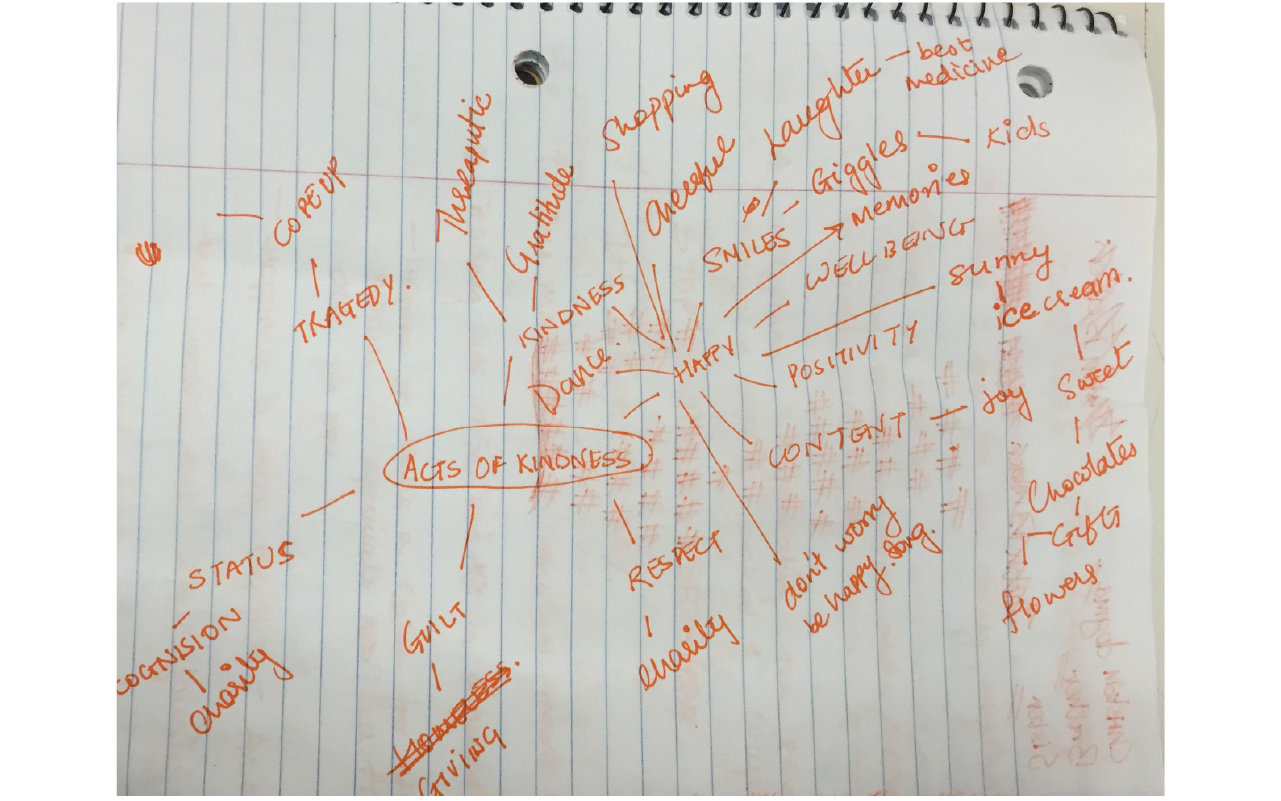 Shopping
Laughter – best
medicine
Therapuitic
Cheerful
Giggles — Kids
COPEUP
Gratitude
SMILES
Memories
WELL BEING
TRAGEDY.
KINDNESS
Sunny
ice cream.
Dance.
HAPPY
POSITIVITY
Sweet
ACTS OF KINDNESS
CONTENT – joy
Chocolates
Gifts
flowers
STATUS
RESPECT
don't worry
be happy. Song.
COGNISION
Charity
GUILT
Charity
HOMELESS.
GIVING